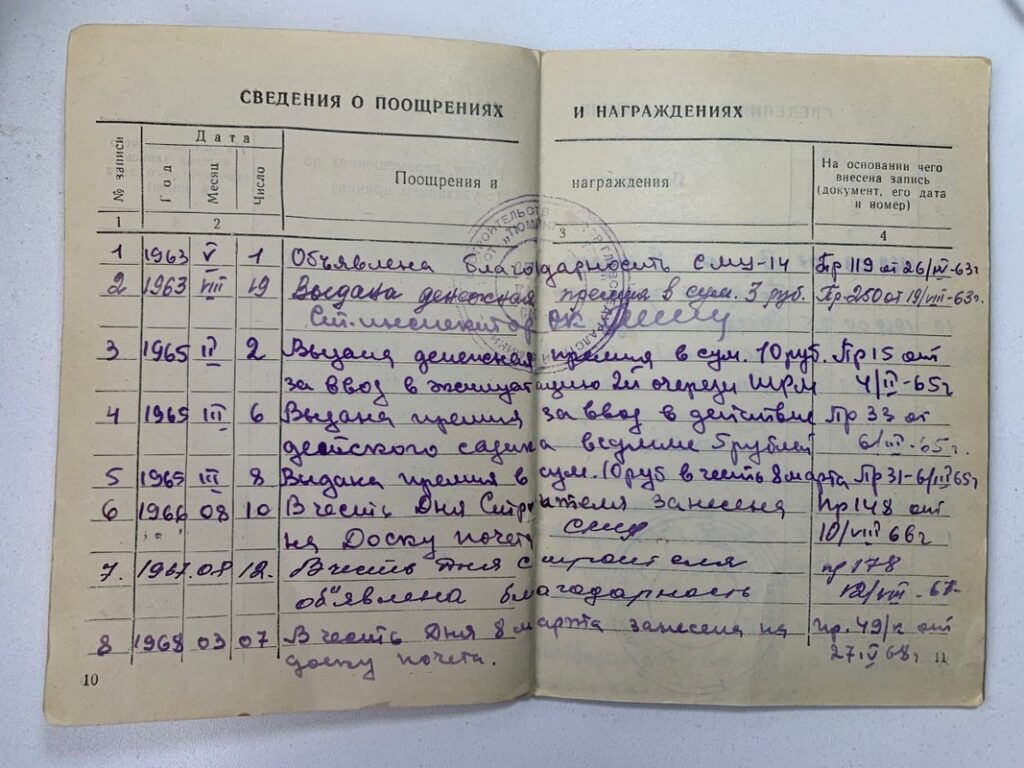 СВЕДЕНИЯ О ПООЩРЕНИЯХ И НАГРАЖДЕНИЯХ
№ записи
Дата
Год
Месяц
Число
Поощрения и награждения
На основании чего
внесена запись
(документ, его дата
и номер)
1 2 3 4
1 1963 V 1 Объявлена благодарность СМУ-14 Пр 119 от 26/IV-63г
2 1963 VIII 19 Выдана денежная премия в сум. 3 руб. Пр-250 от 19/VIII-63г.
Ст. инспектор ОК
3 1965 II 2 Выдана денежная премия в сум. 10 руб. Пр 15 от
за ввод в эксплуатацию 2й очереди ШРМ 4/II-65г
4 1965 III 6 Выдана премия за ввод в действие Пр 33 от
детского садика 5 рублей 6/III-65г.
5 1965 III 8 Выдана премия в сум. 10 руб в честь 8 марта Пр 31-6/III 65г
6 1966 08 10 В честь Дня Строителя занесена пр 148 от
на Доску почета 10/VIII 66г
7. 1967 08 12. В честь Дня строителя пр 178
об"явлена благодарность 12/VIII-67.
8 1968 03 07 В честь Дня 8 марта занесена на пр. 49/к от
доску почета. 27.V 68г
10 11